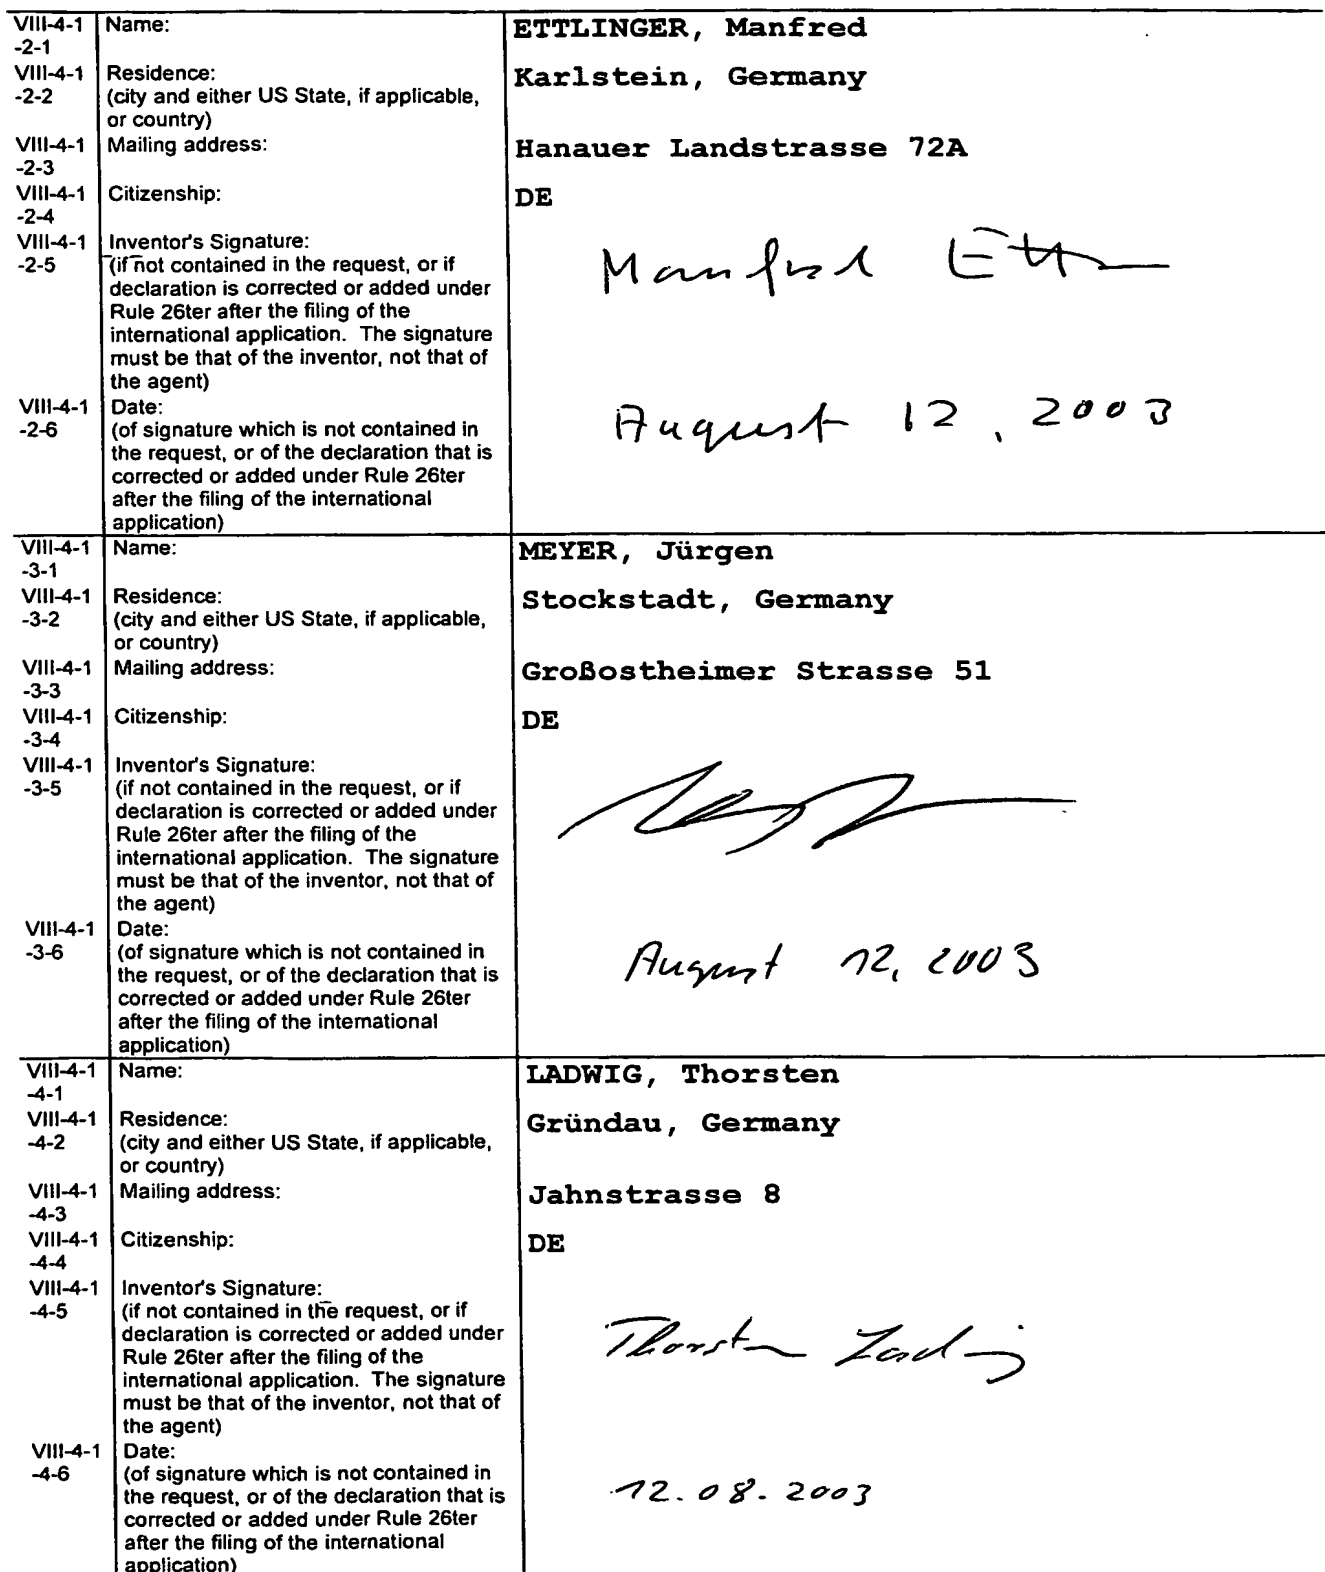 VIII-4-1 Name: ETTLINGER, Manfred
-2-1
VIII-4-1 Residence: Karlstein, Germany
-2-2 (city and either US State, if applicable,
or country)
VIII-4-1 Mailing address: Hanauer Landstrasse 72A
-2-3
VIII-4-1 Citizenship: DE
-2-4
VIII-4-1 Inventor's Signature:
-2-5 (if not contained in the request, or if
declaration is corrected or added under
Rule 26ter after the filing of the
international application. The signature
must be that of the inventor, not that of
the agent)
Manfred
VIII-4-1 Date:
-2-6 (of signature which is not contained in
the request, or of the declaration that is
corrected or added under Rule 26ter
after the filing of the international
application)
August 12, 2003
VIII-4-1 Name: MEYER, Jürgen
-3-1
VIII-4-1 Residence: Stockstadt, Germany
-3-2 (city and either US State, if applicable,
or country)
VIII-4-1 Mailing address: Großostheimer Strasse 51
-3-3
VIII-4-1 Citizenship: DE
-3-4
VIII-4-1 Inventor's Signature:
-3-5 (if not contained in the request, or if
declaration is corrected or added under
Rule 26ter after the filing of the
international application. The signature
must be that of the inventor, not that of
the agent)
VIII-4-1 Date:
-3-6 (of signature which is not contained in
the request, or of the declaration that is
corrected or added under Rule 26ter
after the filing of the international
application)
August 12, 2003
VIII-4-1 Name: LADWIG, Thorsten
-4-1
VIII-4-1 Residence: Gründau, Germany
-4-2 (city and either US State, if applicable,
or country)
VIII-4-1 Mailing address: Jahnstrasse 8
-4-3
VIII-4-1 Citizenship: DE
-4-4
VIII-4-1 Inventor's Signature:
-4-5 (if not contained in the request, or if
declaration is corrected or added under
Rule 26ter after the filing of the
international application. The signature
must be that of the inventor, not that of
the agent)
Thorsten Ladwig
VIII-4-1 Date:
-4-6 (of signature which is not contained in
the request, or of the declaration that is
corrected or added under Rule 26ter
after the filing of the international
application)
12.08.2003